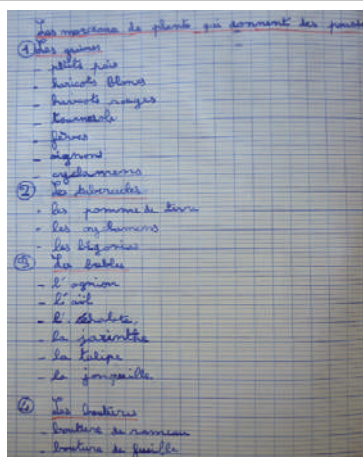 Les morceaux de plante qui donnent des pousses
① Les graines
- petits pois
- haricots blancs
- haricots rouges
- tournesols
- fèves
- oignons
- cyclamens
② Les tubercules
- les pomme de terre
- les cyclamens
- les bégonias
③ Les bulbes
- l'ognion
- l'ail
- l'échalote
- la jacinthe
- la tulipe
- la jonquille
④ Les boutures
- bouture de rameau
- bouture de feuille